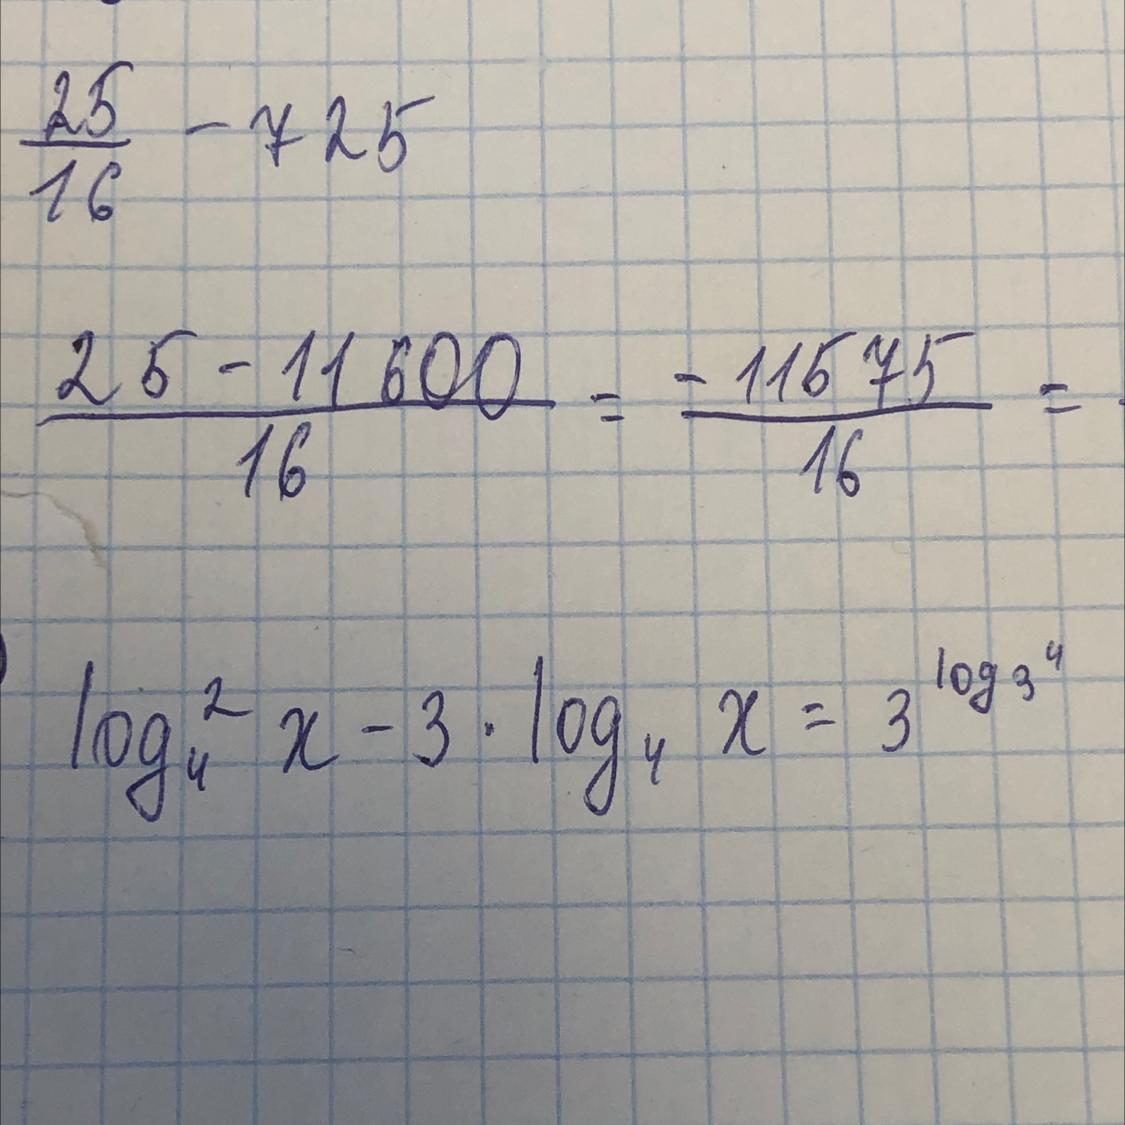 25/16 - 725
(25 - 11600)/16 = (-11575)/16 = -
log₄² x - 3 · log₄ x = 3^(log₃ 4)